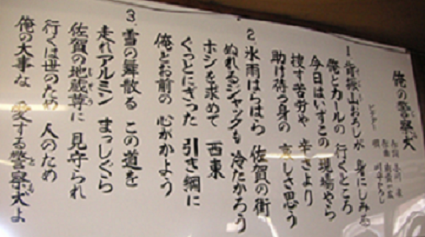 俺の警察犬
1. 背振山おろし 水 身にしみる
俺とカールの 行くところ
今日はいずこの 現場やら
捜す苦労や 辛さより
助け待つ身の 哀しさ思う
2. 氷雨はらはら 佐賀の街
ぬれるジャックも 冷たかろう
ホシを求めて 西東
ぐっとにぎった 引き綱に
俺とお前の 心がかよう
3. 雪の舞散る この道を
走れアルミン まっしぐら
佐賀の地蔵尊に 見守られ
行くは世のため 人のため
俺の大事な 愛する警察犬よ